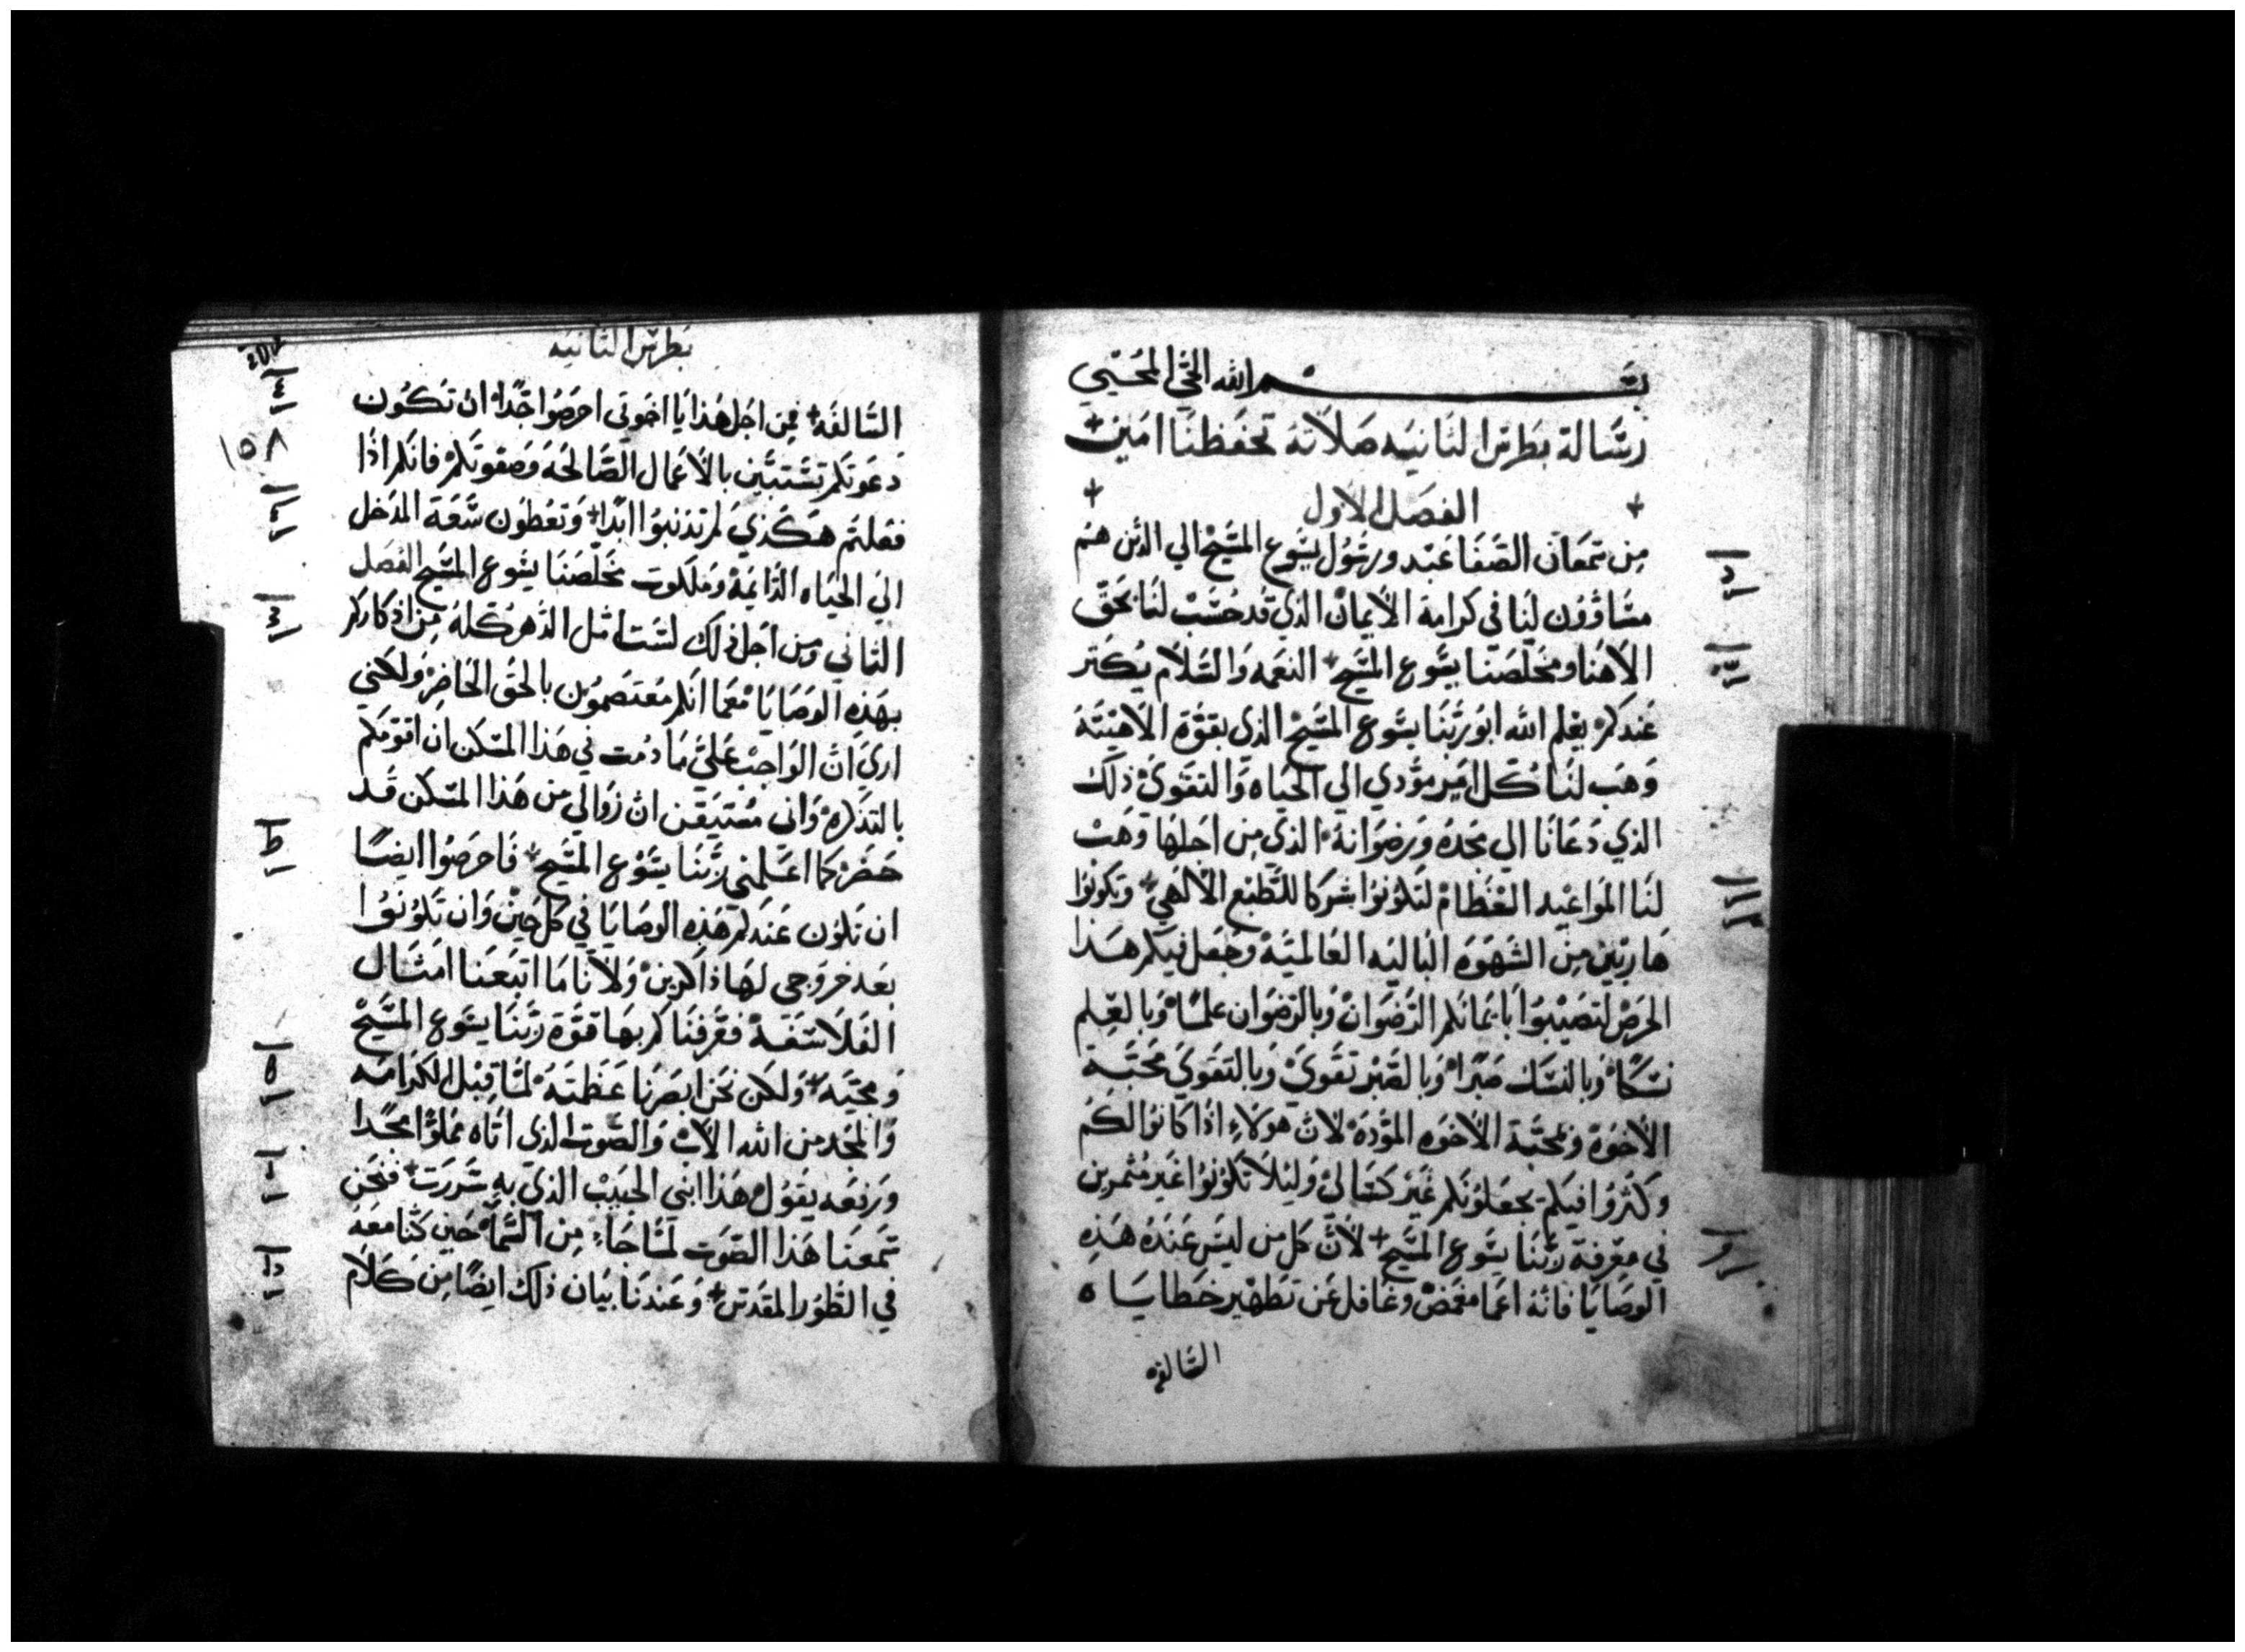 بسم الله الحي المحيي
رسالة بطرس الثانيه صلاته تحفظنا امين
الفصل الاول
من سمعان الصفا عبد ورسول يسوع المسيح الي الذين هم
مساوون لنا في كرامة الايمان الذي قد حسب لنا بحق
الاهنا ومخلصنا يسوع المسيح النعمه والسلام يكثر
عندكم بعلم الله ابو ربنا يسوع المسيح الذي بقوة الاهيته
وهب لنا كل امر مودي الي الحياه والتقوي ذلك
الذي دعانا الي مجده ورضوانه الذي من اجلها وهب
لنا المواعيد العظام لتكونوا شركا للطبع الالهي وتكونوا
هاربين من الشهوه الباليه العالميه وجعل فيكم هذا
الحرص لتصيبوا بايمانكم الرضوان وبالرضوان علما وبالعلم
نسكا وبالنسك صبرا وبالصبر تقوي وبالتقوي محبة
الاخوة ومحبة الاخوه الموده لان هولاء اذا كانوا لكم
وكثروا فيكم يجعلونكم غير كسالي وليلا تكونوا غير مثمرين
في معرفة ربنا يسوع المسيح لان كل من ليس عنده هذه
الوصايا فانه اعما مغمض وغافل عن تطهير خطاياه
السالفه
بطرس الثانيه
١٥٨
السالفه فمن اجل هذا يا اخوتي احرصوا جدا ان تكون
دعوتكم تستبين بالاعمال الصالحه وصفوتكم فانكم اذا
فعلتم هكذي لم تذنبوا ابدا وتعطون سعة المدخل
الي الحياه الدايمة وملكوت مخلصنا يسوع المسيح الفصل
الثاني ومن اجل ذلك لست امل الدهر كله من اذكاركم
بهذه الوصايا معما انكم معتصمون بالحق الحاضر ولكني
اري ان الواجب علي ما دمت في هذا المسكن ان اقومكم
بالتذكره واني مستيقن ان زوالي من هذا المسكن قد
حضر كما اعلمني ربنا يسوع المسيح فاحرصوا ايضا
ان تكون عندكم هذه الوصايا في كل حين وان تكونوا
بعد خروجي لها ذاكرين ولاننا ما اتبعنا امثال
الفلاسفة فعرفناكم بها قوة ربنا يسوع المسيح
ومجيه ولكن نحن ابصرنا عظمته لما قبل الكرامه
والمجد من الله الاب والصوت الذي اتاه مملوا مجدا
ورفعه يقول هذا ابني الحبيب الذي به سررت فنحن
سمعنا هذا الصوت لما جاء من السما حين كنا معه
في الطور المقدس وعندنا بيان ذلك ايضا من كلام